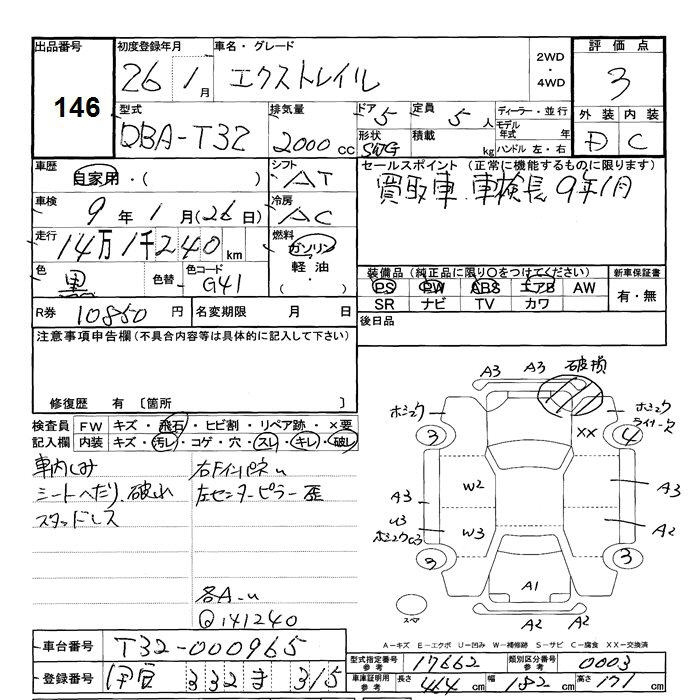 出品番号
146
初度登録年月
26 1月
車名・グレード
エクストレイル
2WD
・
4WD
評価点
3
外装 内装
D C
型式
DBA-T32
排気量
2000 CC
ドア 5
形状 SWG
定員 5 人
積載 kg
ディーラー・並行
モデル年式 年式
ハンドル 左・右
車歴
自家用・( )
シフト
AT
セールスポイント (正常に機能するものに限ります)
買取車 車検長 9年1月
車検
9年 1月(26日)
冷房
AC
走行
14万1千240 km
燃料
ガソリン
軽油
色
黒
色替
色コード
G41
装備品 (純正品に限り○をつけてください)
PS PW ABS エアB AW
SR ナビ TV カワ
新車保証書
有・無
R券 10850 円
名変期限 月 日
後日品
注意事項申告欄 (不具合内容等は具体的に記入して下さい)
修復歴 有 〔箇所 〕
検査員記入欄
FW キズ・飛石・ヒビ割・リペア跡・×要
内装 キズ・汚レ・コゲ・穴・スレ・キレ・破レ
車内しみ
シートへたり、破れ
スタッドレス
右Fインパネu
左センターピラー歪
各A-u
Q141240
A3 A3 破損
ホミュウ
3
ホミュウ
ライナー欠
4
XX
A3
W2
A3
U3
ホミュウU3
W3
A2
3
3
A1
スペア
A2 A2
A-キズ E-エクボ U-凹み W-補修跡 S-サビ C-腐食 XX-交換済
車台番号 T32-000965
登録番号 伊豆 332 ま 315
型式指定番号 参考 17662
類別区分番号 参考 0003
車庫証明用 参考 長さ 464 cm 幅 182 cm 高さ 171 cm